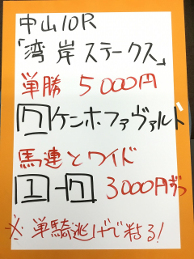 中山10R
「湾岸ステークス」
単勝 5000円
7 ケンホファヴァルト
馬連とワイド
1-7 3000円ずつ
※単騎逃げで粘る!